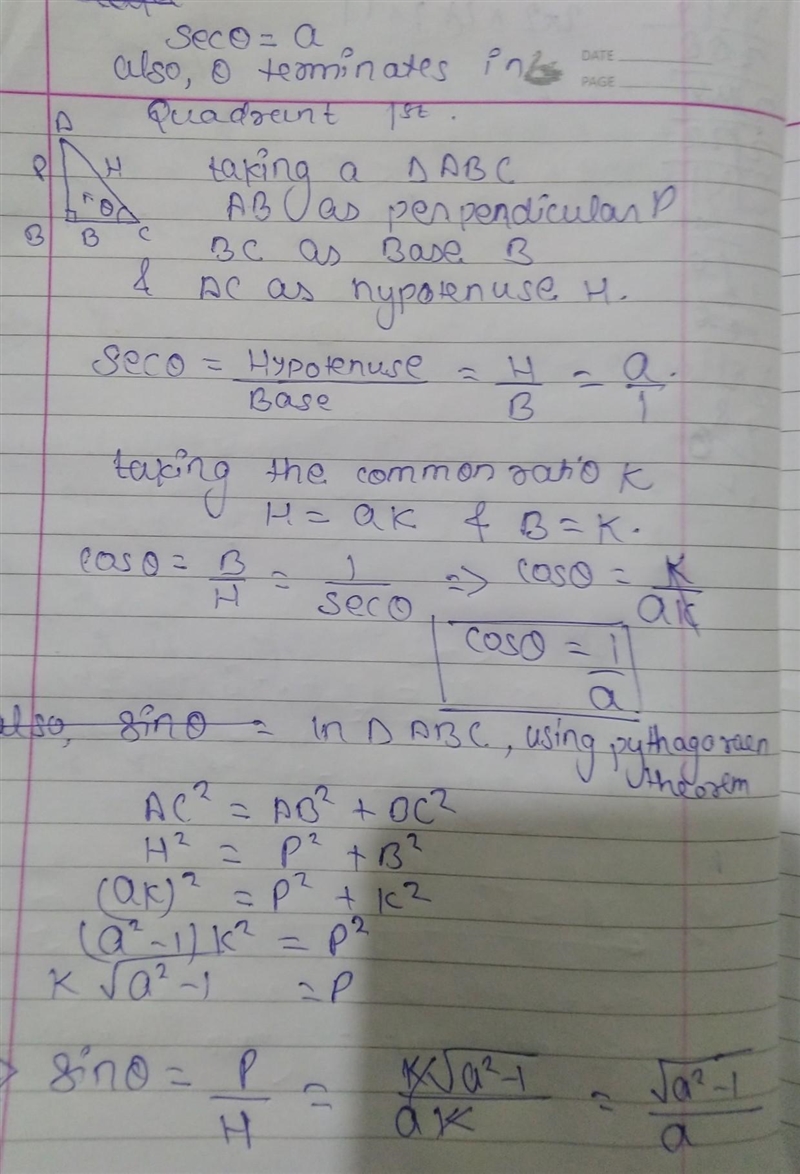 secθ = a
also, θ terminates in
DATE
PAGE
Quadrant 1st.
A
P H
θ
B B C
taking a ΔABC
AB as perpendicular P
BC as Base B
& AC as hypotenuse H.
secθ = Hypotenuse/Base = H/B = a/1.
taking the common ratio K
H = aK & B = K.
cosθ = B/H = 1/secθ => cosθ = K/aK
cosθ = 1/a
also, sinθ = in ΔABC, using pythagoraen
theorem
AC² = AB² + BC²
H² = P² + B²
(aK)² = P² + K²
(a²-1)K² = P²
K√a²-1 = P
sinθ = P/H = K√a²-1/aK = √a²-1/a